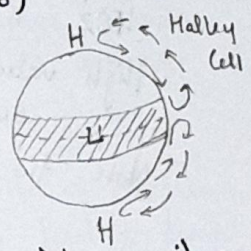 H
Halley
Cell
L
H